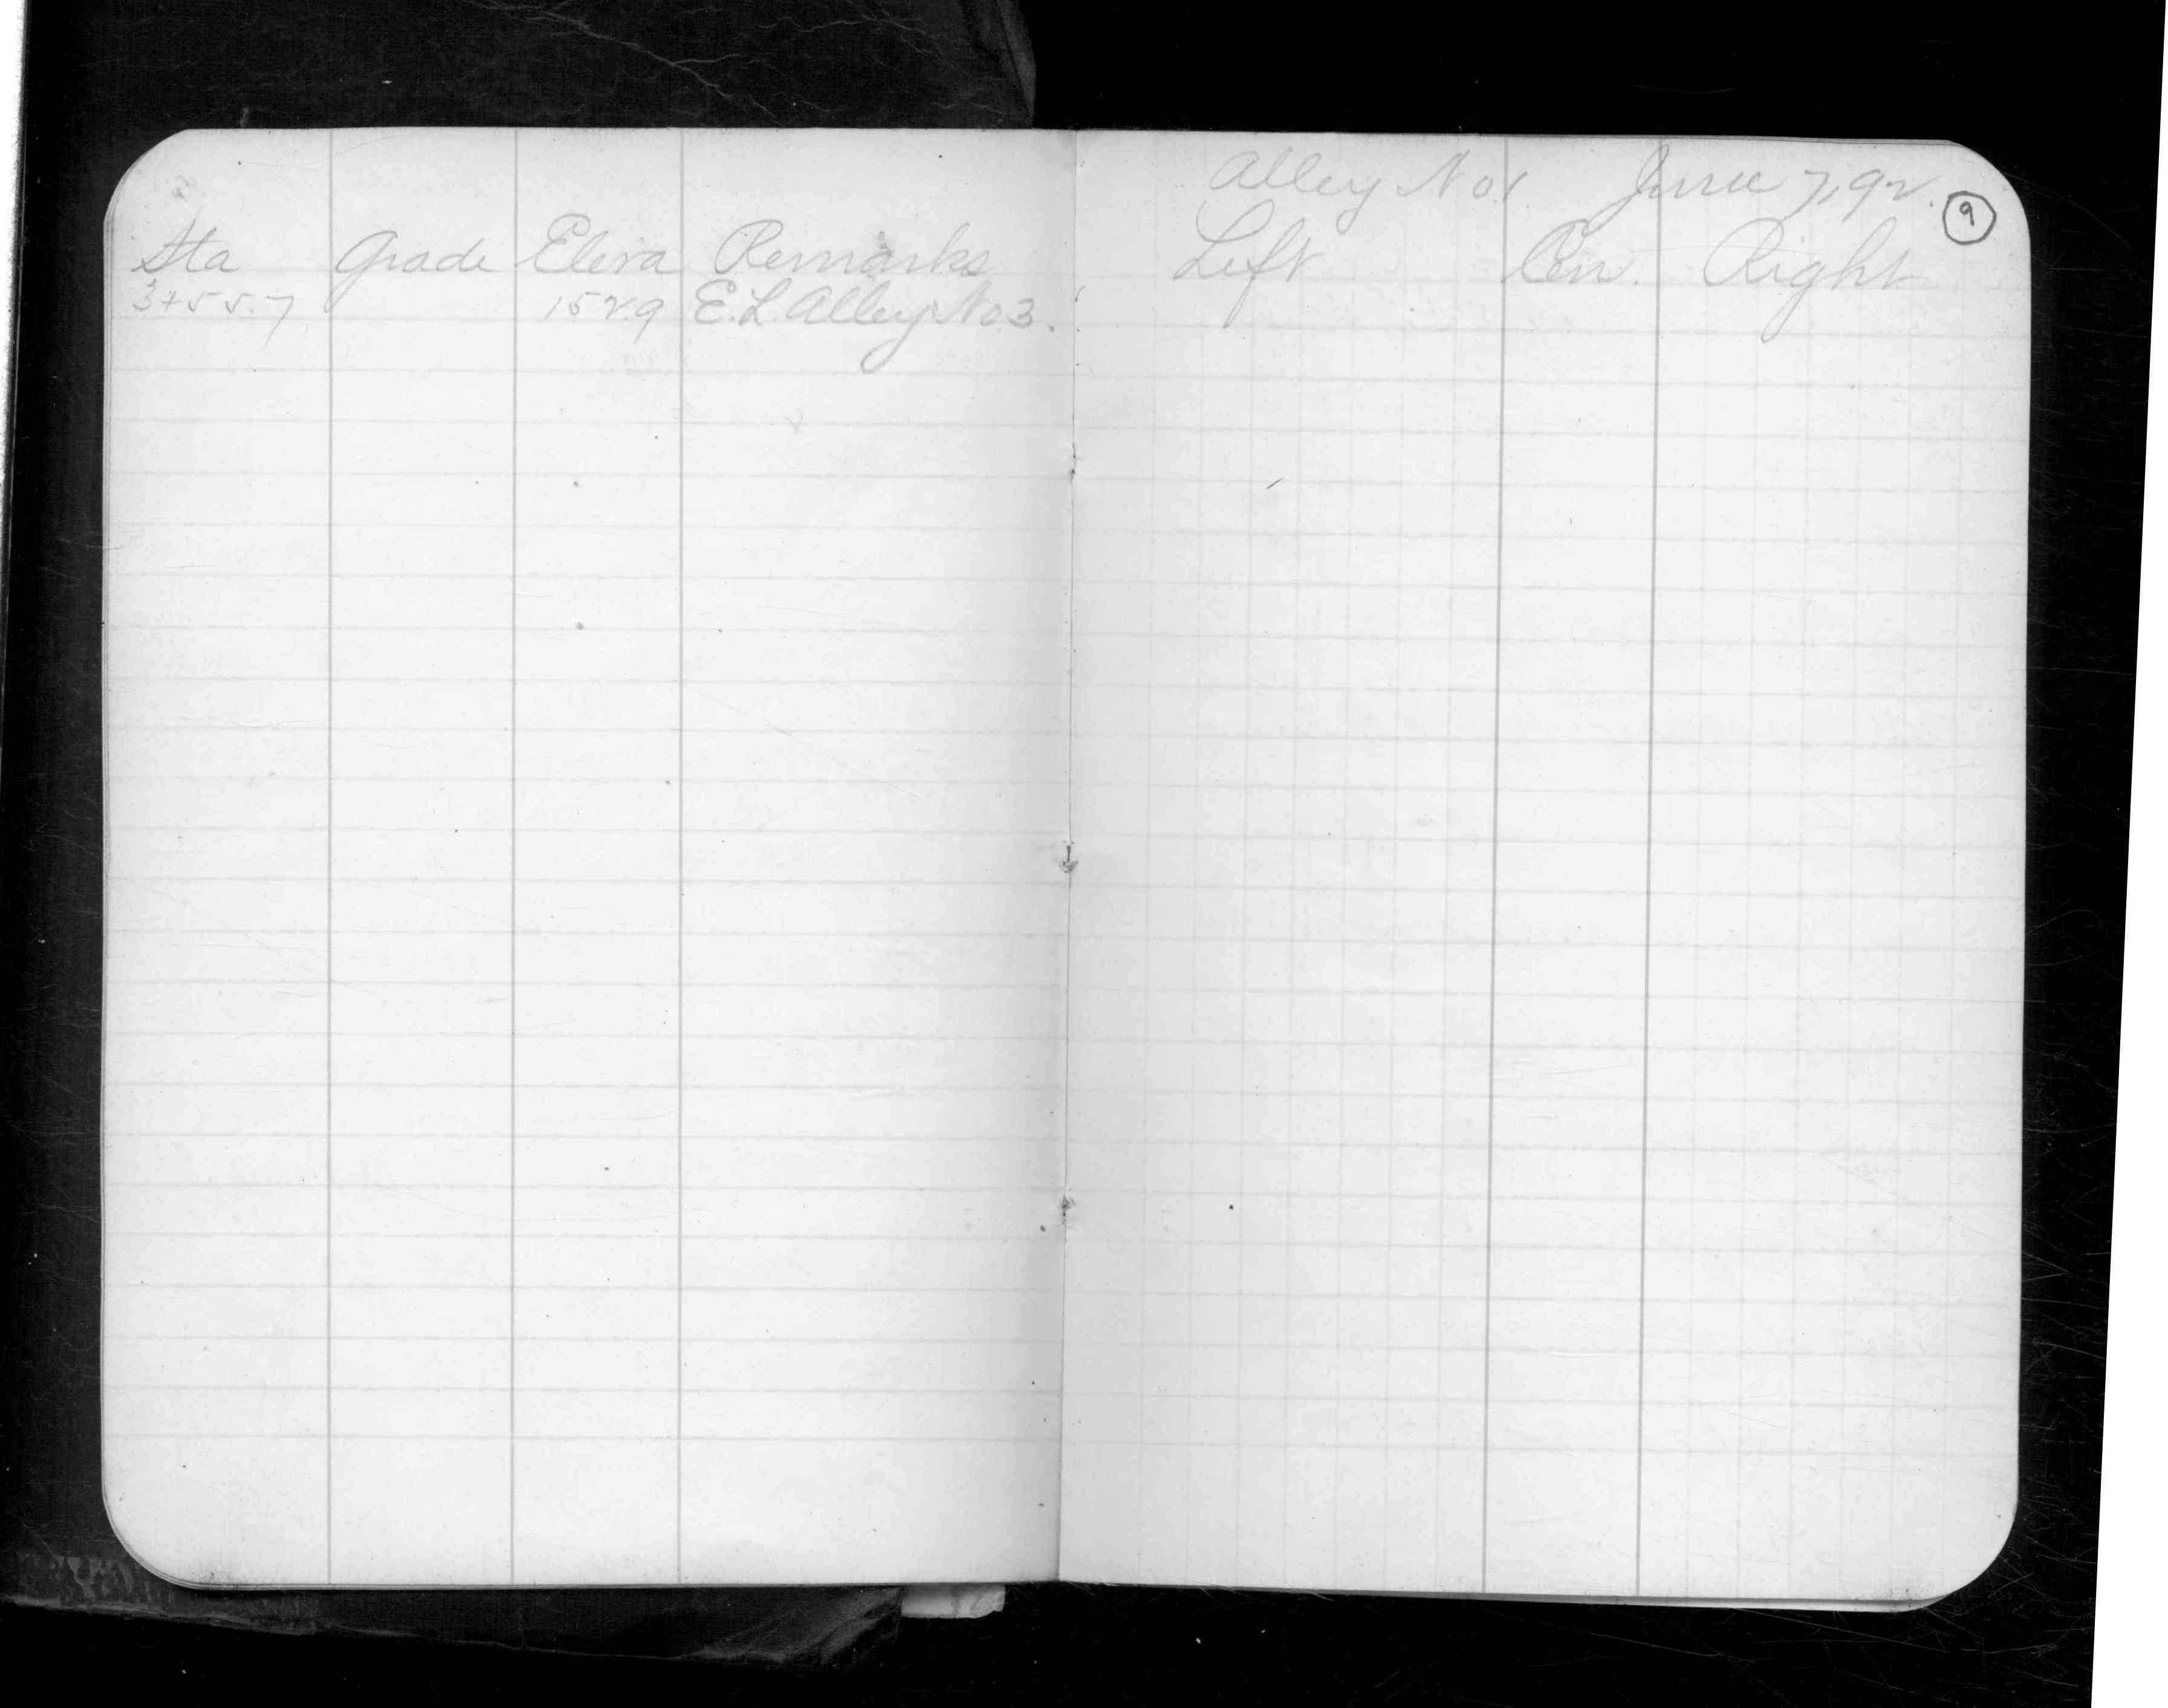 Alley No 1. June 7, 92.
9
Sta Grade Eleva Remarks Left Cen. Right
3+55.7 152.9 E.L. Alley No 3.